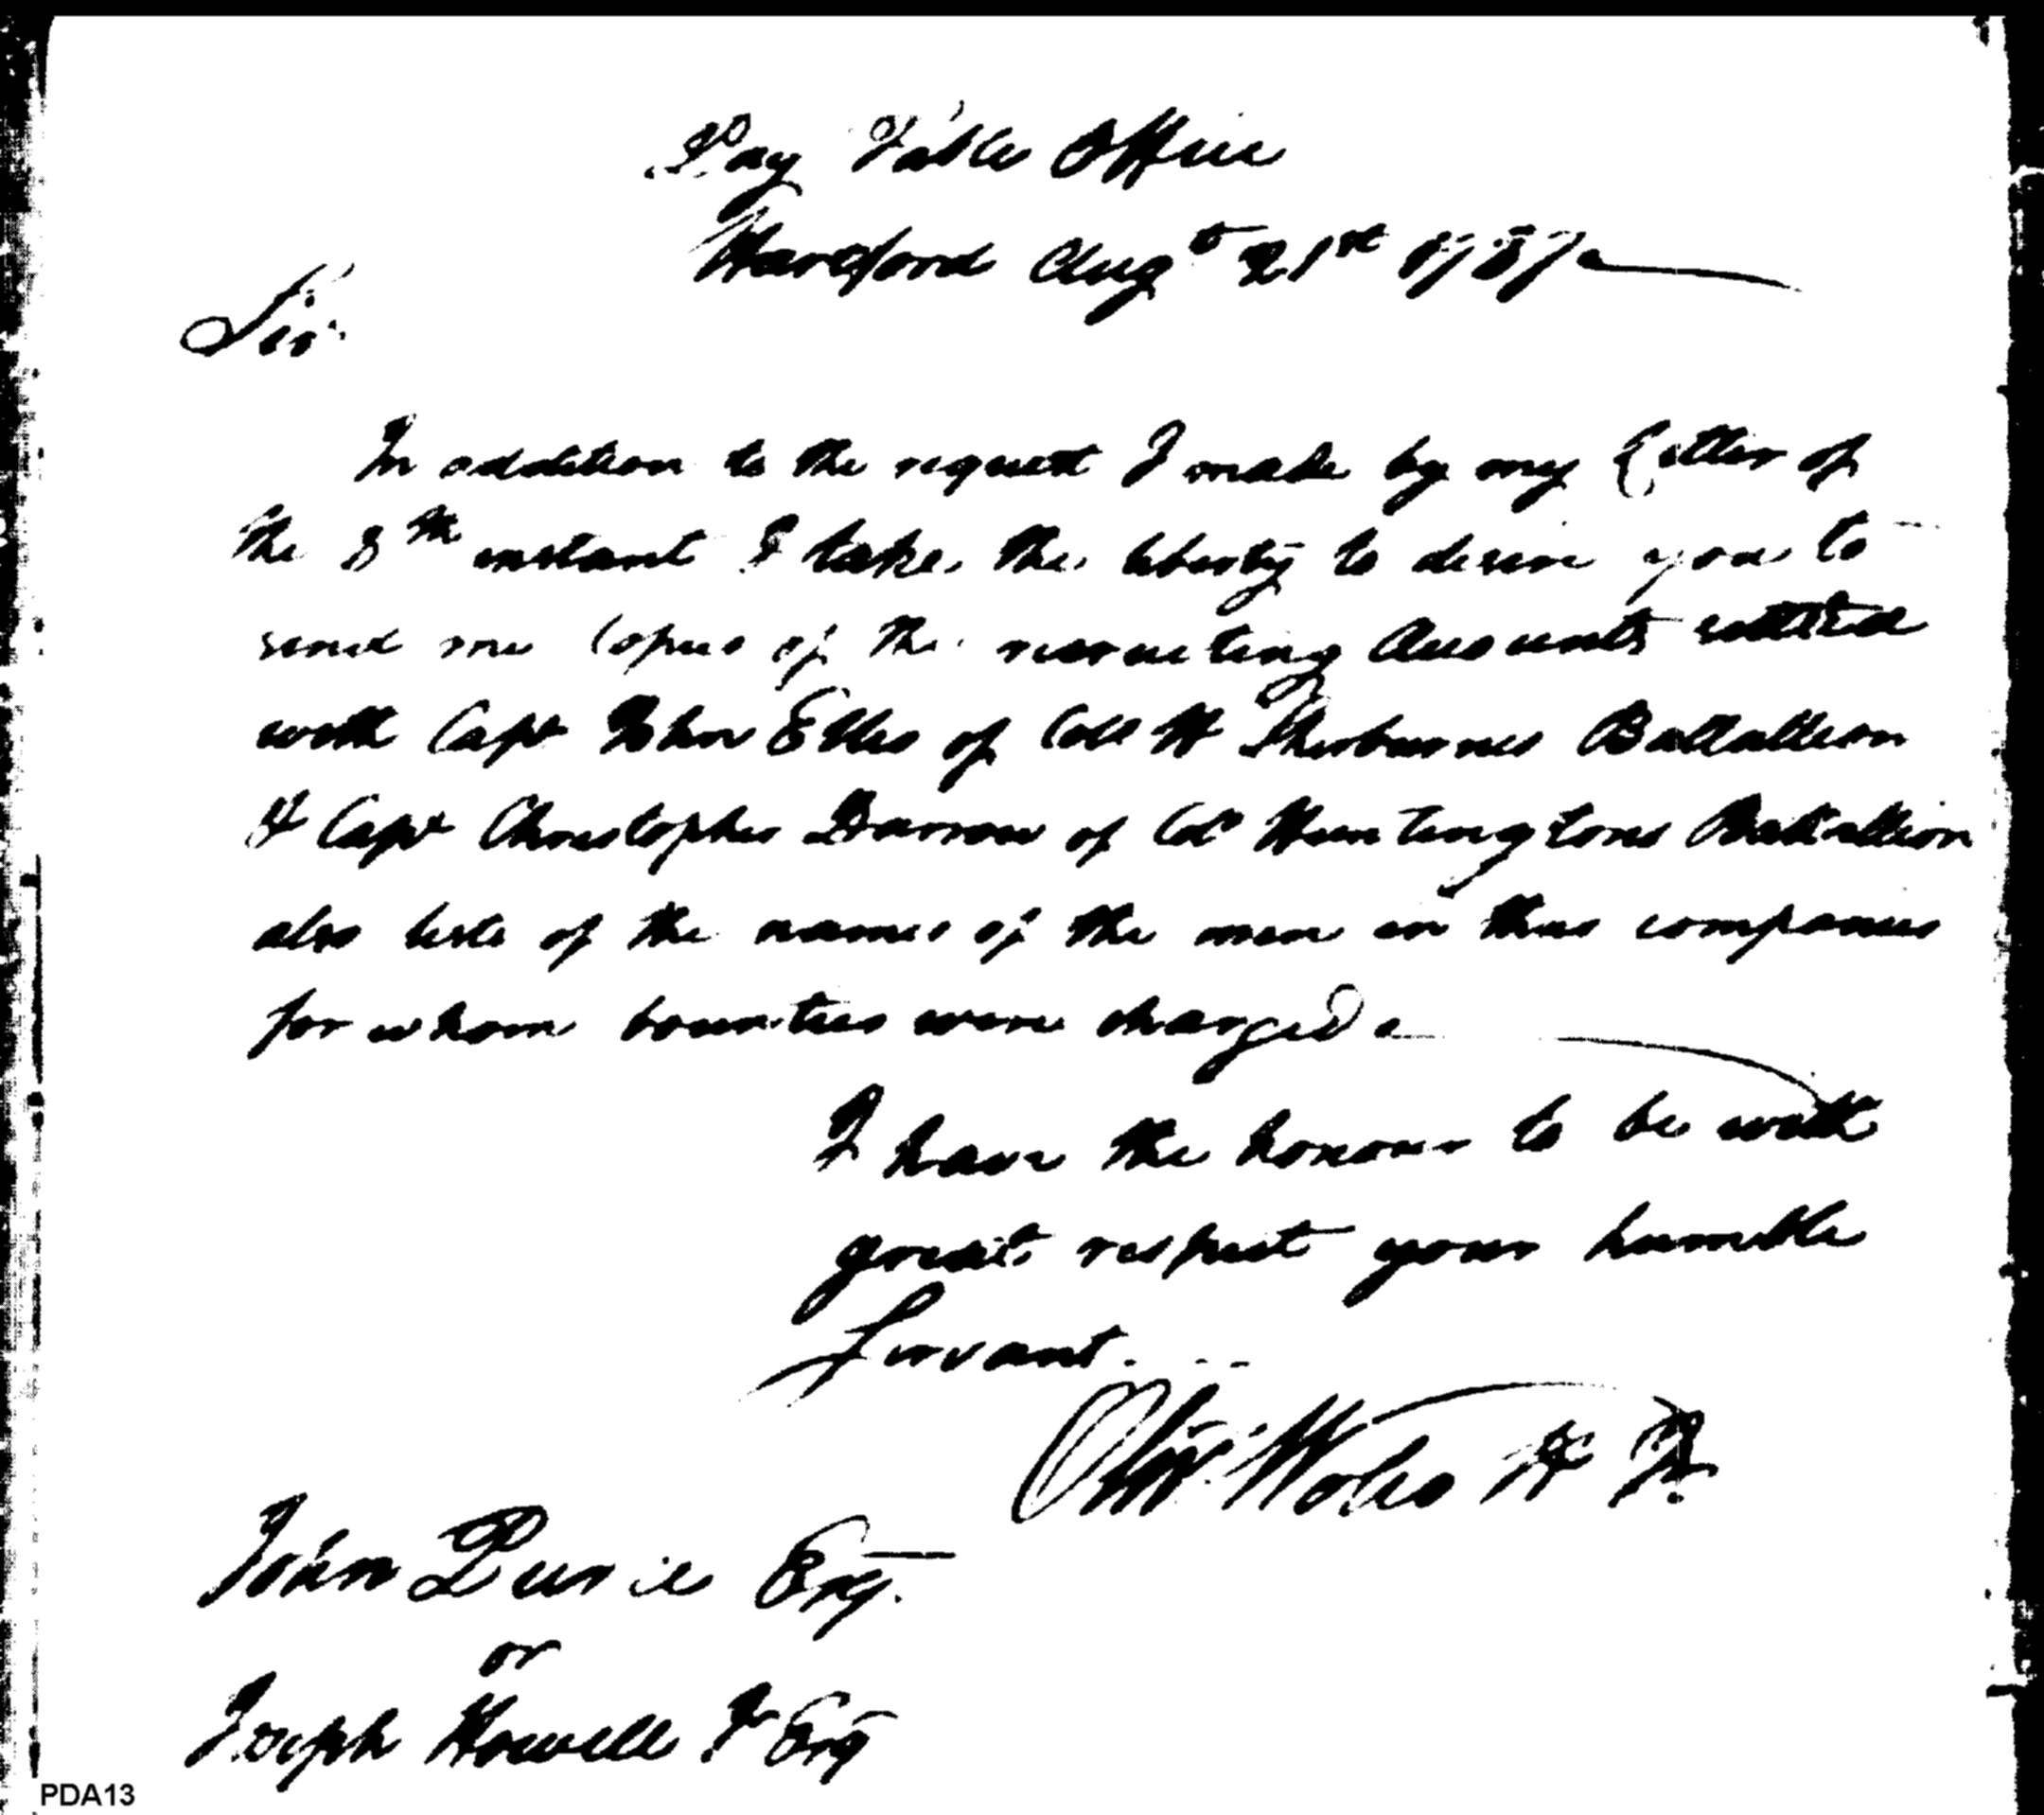 Pay Table Office
Hartford Augt 21st 1787
Sir
In addition to the request I made by my Letter of
the 8th instant I take the liberty to desire you to
send me Copies of the recruiting Accounts settled
with Capt John Ellis of Coll H Sherburnes Battallion
& Capt Christopher Darrow of Col Huntingtons Battallion
also lists of the names of the men in their companies
for whom bounties were charged
I have the honour to be with
great respect your humble
Servant
Oliv
John Esq.
or
Joseph Howell Jr Esq
PDA13